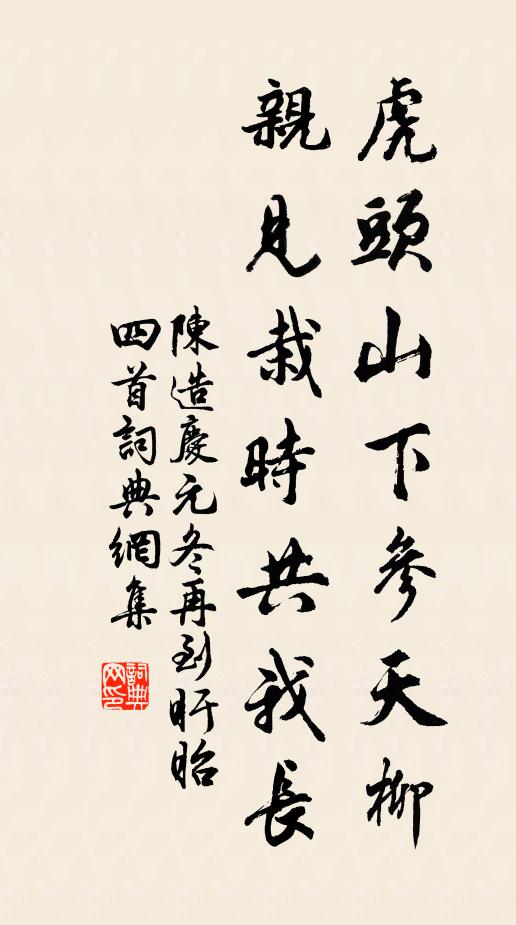 虎頭山下參天柳
親見栽時共我長
陳造慶元冬再到盱眙
四首詞典網集
詞典
网印